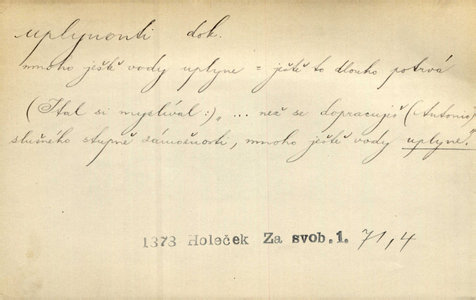 uplynouti dok.
mnoho ještě vody uplyne = ještě to dlouho potrvá
(Ital si myslíval:) „ ... než se dopracuješ (Antonio)
slušného stupně zámožnosti, mnoho ještě vody uplyne.
1373 Holeček Za svob. 1. 71,4